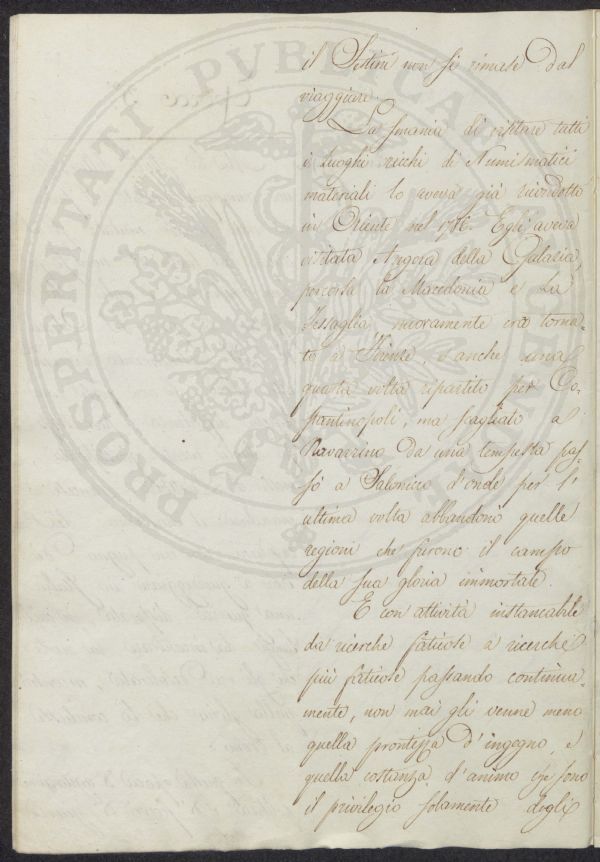 il Sestini non si rimase dal
viaggiare.
La smania di visitare tutti
i luoghi ricchi di Numismatici
materiali lo aveva già ricondotto
in Oriente nel Egli aveva
visitata Angora della Galazia,
percorsa la Macedonia e La
Tessaglia nuovamente era torna-
to a Firenze, e anche una
quarta volta ripartito per Co-
stantinopoli, ma scagliato a
Navarrino da una tempesta pas-
sò a Salonicco d'onde per l'
ultima volta abbandonò quelle
regioni che furono il campo
della sua gloria immortale.
E con attività instancabile
da ricerche faticose a ricerche
più faticose passando continua-
mente, non mai gli venne meno
quella prontezza d'ingegno, e
quella costanza d'animo che sono
il privilegio solamente degli
PROSPERITATI PVBLICAE AVGENDAE